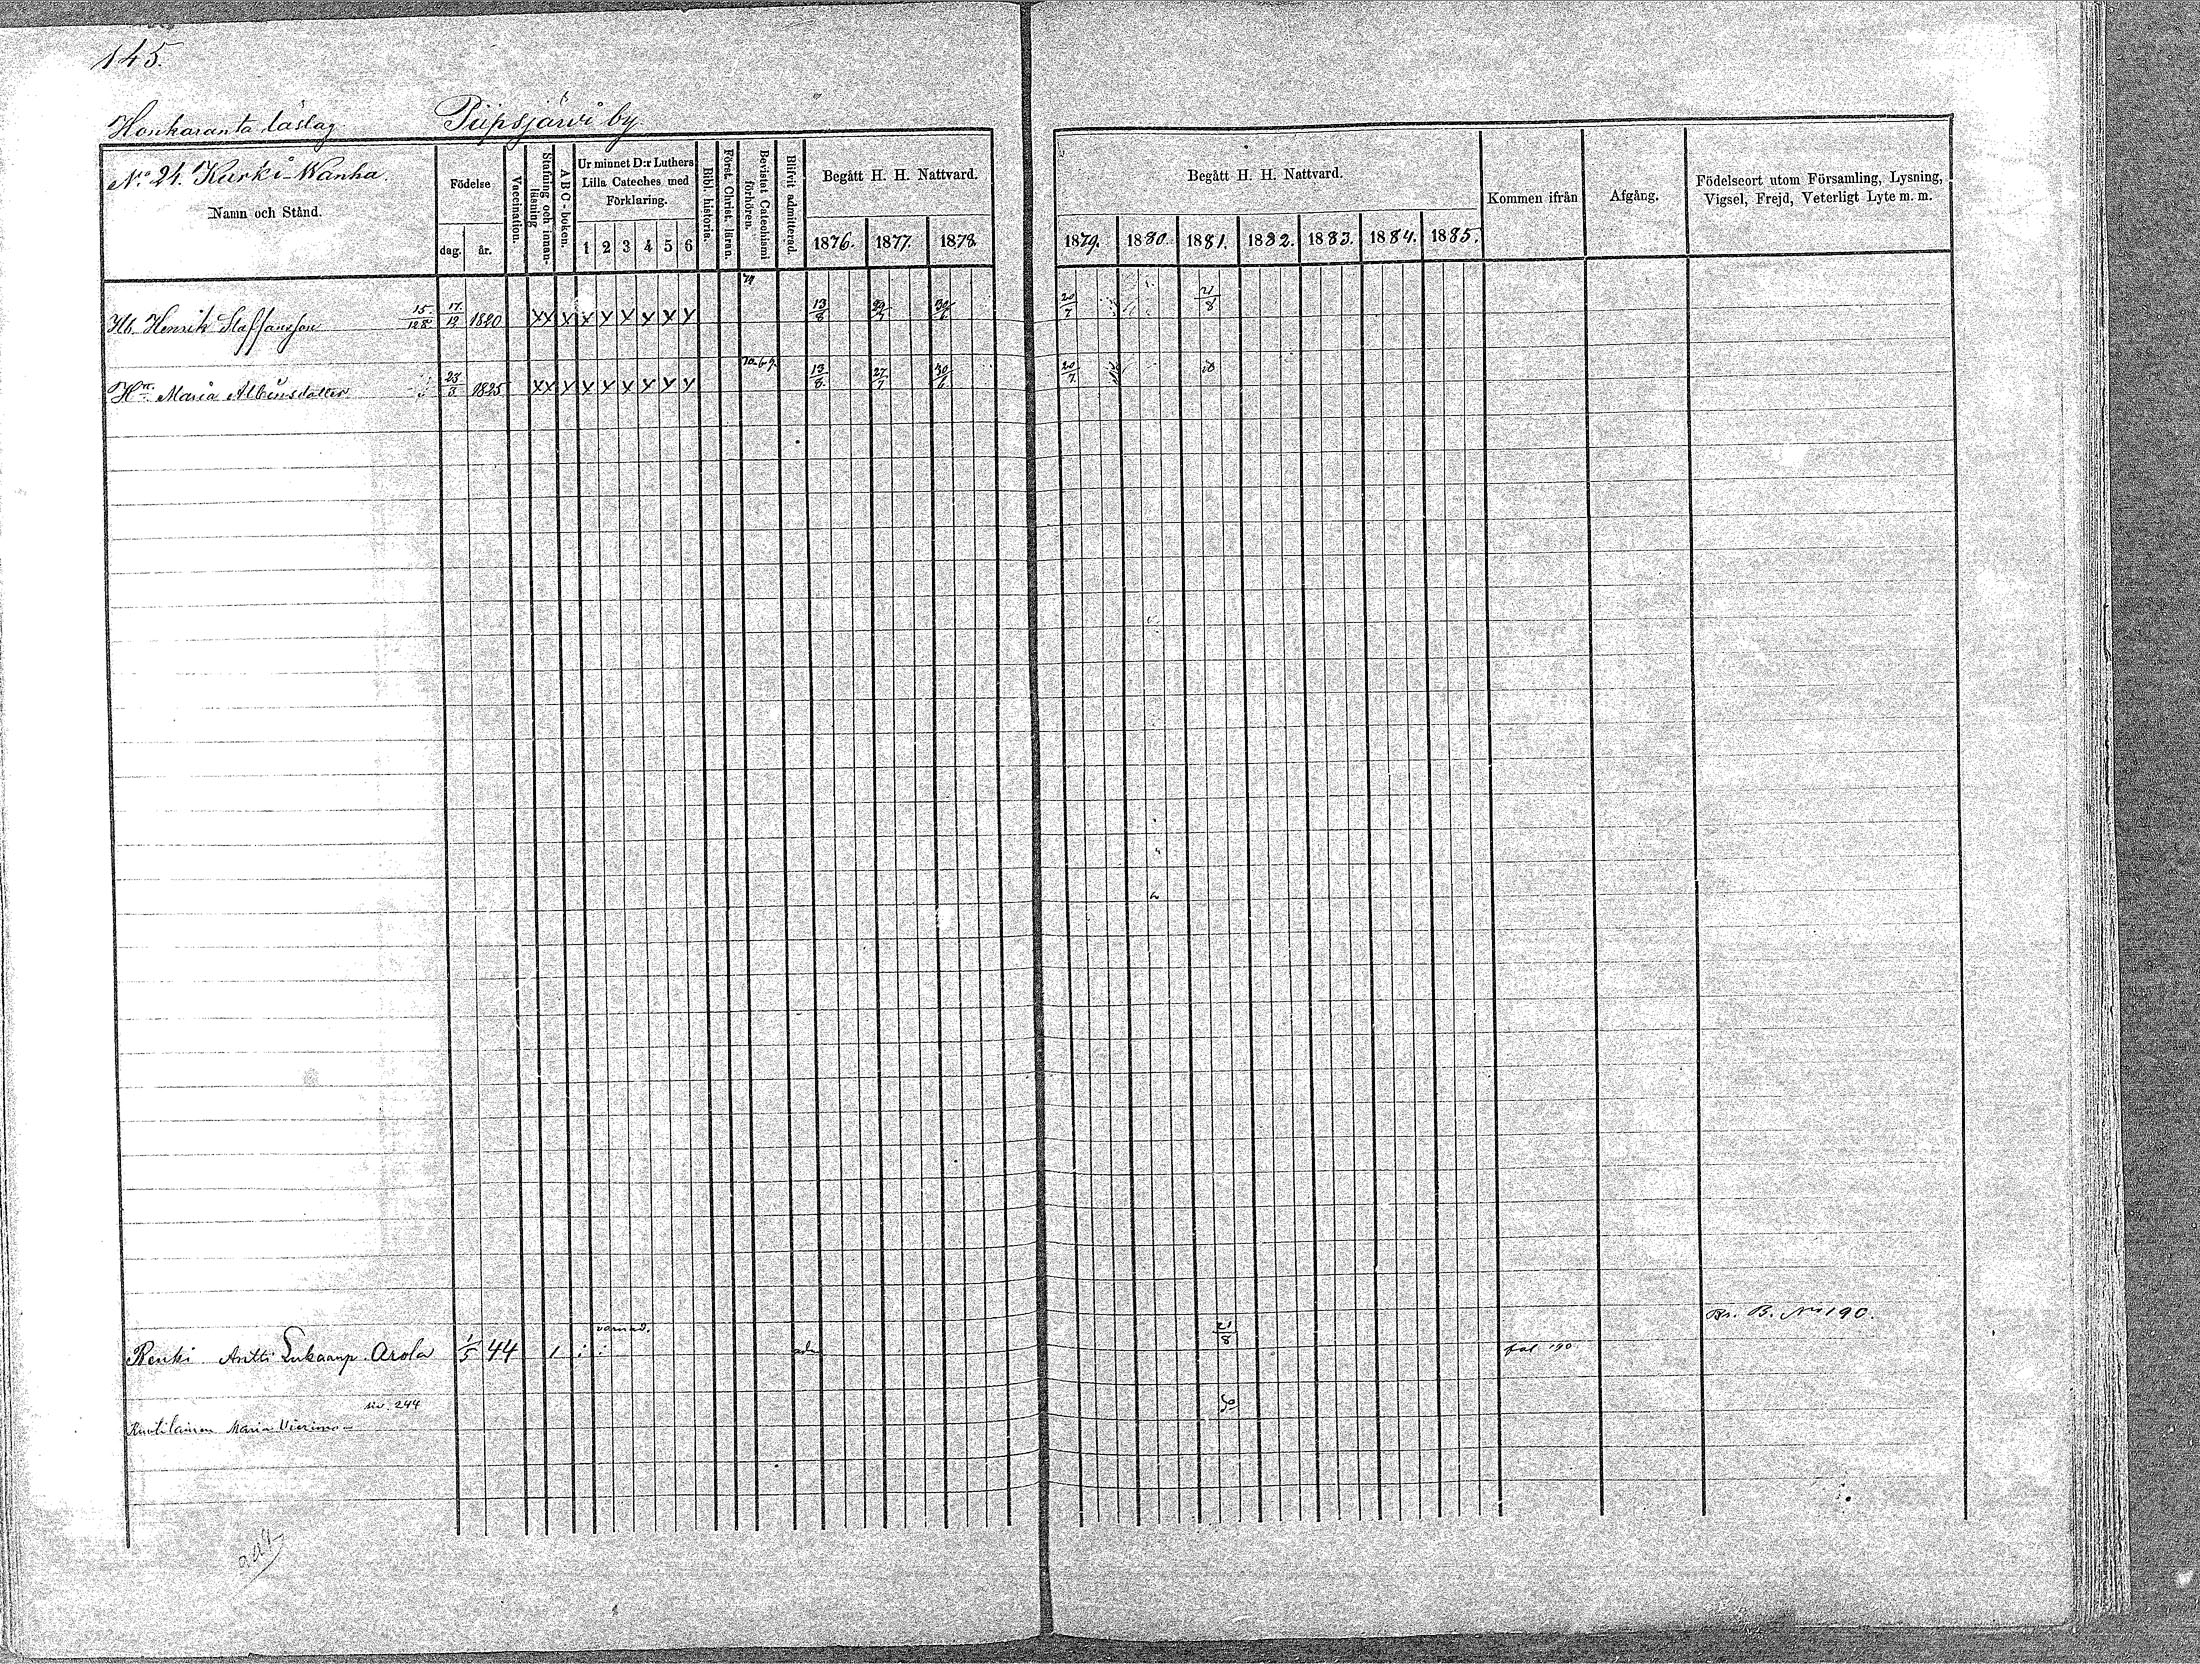 145.
Honkaranta läslag. Piipsjärvi by.
No 24. Kurki-Wanha.
Namn och Stånd.
Födelse
dag. år.
Vaccination.
Stafning och innanläsning
A B C-boken.
Ur minnet D:r Luthers Lilla Cateches med Förklaring.
1 2 3 4 5 6
Bibl. historia.
Först. Christ. läran.
Bevistat Catechismi förhören.
Blifvit admitterad.
Begått H. H. Nattvard.
1876. 1877. 1878.
Begått H. H. Nattvard.
1879. 1880. 1881. 1882. 1883. 1884. 1885.
Kommen ifrån
Afgång.
Födelseort utom Församling, Lysning, Vigsel, Frejd, Veterligt Lyte m. m.
Hb. Henrik Staffansson 15/128 17/12 1820 X X X X X X X X X 13/8 20/7 21/8
Hu. Maria Albinsdotter 23/3 1825 X X X X X X X X X 13/8 27/7 30/6 20/7
Br. B. No 190.
varnad. 21/8
Renki Antti Lukaanp. Arola 1/5 44 1 fol 190
siv. 244
Maria